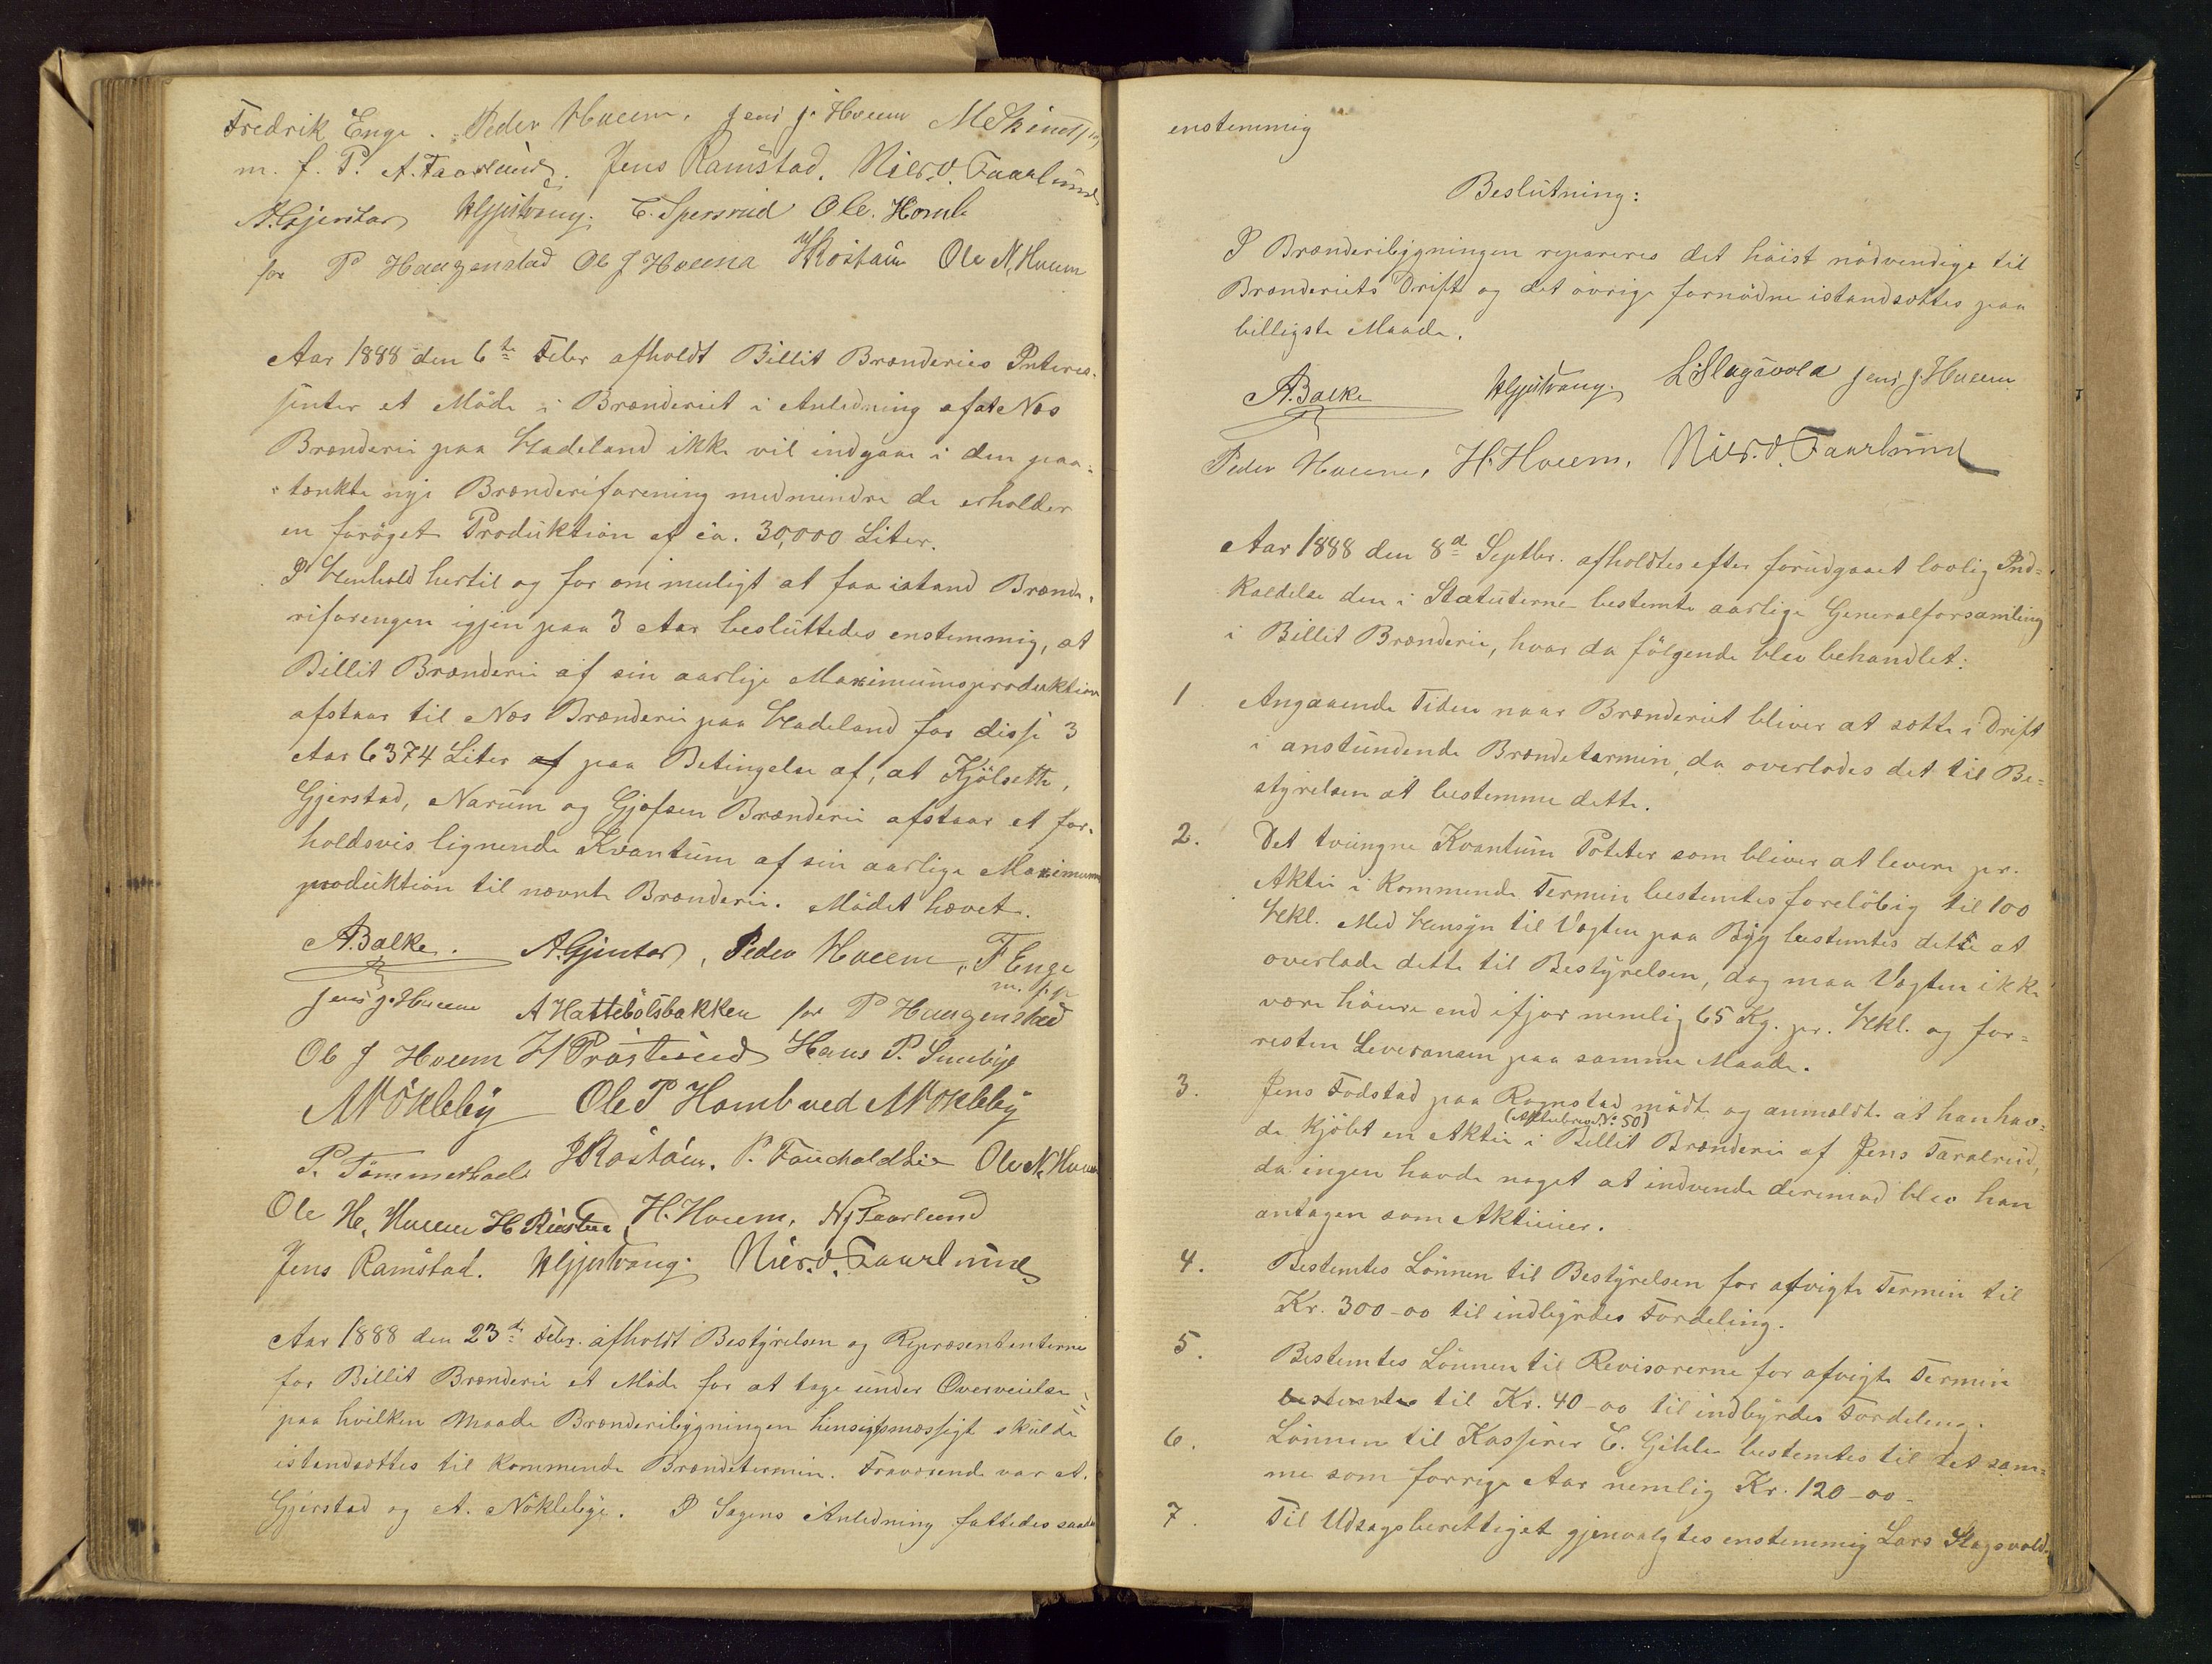 Fredrik Enge. Peder Hveem. Jens J. Hveem
m. f. P. A. Faarlund. Jens Ramstad. Nils O. Faarlund
A. Gjerstad E. Spersrud Ole. Homb
for P Haugenstad Ole J Hveem Ole N. Hveem
Aar 1888 den 6te Febr afholdt Billit Brænderies Interes-
senter et Möde i Brænderiet i Anledning af at Næs
Brænderi paa Hadeland ikke vil indgaa i den paa-
-tænkte nye Brænderiforening medmindre de erholder
en foröget Produktion af ca. 30,000 Liter.
I Henhold hertil og for om muligt at faa istand Brænde-
riforengen igjen paa 3 Aar besluttedes enstemmig, at
Billit Brænderi af sin aarlige Maximumsproduktion
afstaar til Næs Brænderi paa Hadeland for disse 3
Aar 6374 Liter af paa Betingelse af, at Kjölsette,
Gjerstad, Narum og Gjefsen Brænderi afstaar et for-
holdsvis lignende Kvantum af sin aarlige Maximum
produktion til nævnte Brænderi. Mödet hævet.
A. Balke. A. Gjerstad, Peder Hveem, F Enge
m. f. p
Jens J. Hveem A Hattebölsbakken for P Haugenstad
Ole J Hveem H Pröstsrud Hans P. Sundbye
A Nökleby Ole P Homb ved A Nökleby
P. Tömmerhoel P. Fauchaldlie Ole N. Hveem
Ole H. Hveem H. Hveem, N J Faarlund
Jens Ramstad. Nils. O. Faarlund
Aar 1888 den 23de Febr. afholdt Bestyrelsen og Repræsentanterne
for Billit Brænderi et Möde for at tage under Overveielse
paa hvilken Maade Brænderibygningen hensigtsmæssigt skulde
istandsættes til kommende Brændetermin. Fraværende var A.
Gjerstad og A. Nöklebye. I Sagens Anledning fattedes saadan
enstemmig
Beslutning:
I Brænderibygningen repareres det höist nödvendige til
Brænderiets Drift og det övrige fornödne istandsættes paa
billigste Maade.
A. Balke L. Slagsvold Jens J. Hveem
Peder Hveem, H. Hveem, Nils. O. Faarlund
Aar 1888 den 8d Septbr. afholdtes efter forudgaaet lovlig Ind-
kaldelse den i Statuterne bestemte aarlige Generalforsamling
i Billit Brænderie, hvor da fölgende blev behandlet:
1 Angaaende Tiden naar Brænderiet bliver at sætte i Drift
i anstundende Brændetermin, da overlodes det til Be-
styrelsen at bestemme dette.
2. Det tvungne Kvantum Poteter som bliver at levere pr.
Aktie i kommende Termin bestemtes forelöbig til 100
Hekl. Med Hensyn til Vægten paa Byg bestemtes dette at
overlade dette til Bestyrelsen, dog maa Vægten ikke
være höiere end ifjor nemlig 65 Kg. pr. Hekl. og for-
resten Leveransen paa samme Maade.
3. Jens Fodstad paa Rognstad mödte og anmeldte at han hav-
(Aktiebrev No. 50)
de kjöbt en Aktie i Billit Brænderi af Jens Taralrud,
da ingen havde noget at indvende derimod blev han
antagen som Aktieier.
4. Bestemtes Lönnen til Bestyrelsen for afvigte Termin til
Kr. 300-00 til indbyrdes Fordeling.
5. Bestemtes Lönnen til Revisorerne for afvigte Termin
bestemtes til Kr. 40-00 til indbyrdes Fordeling.
6. Lönnen til Kasserer E. Gihle bestemtes til det sam-
me som forrige Aar nemlig Kr. 120-00-
7. Til Udsagsberettiget gjenvalgtes enstemmig Lars Slagsvold.